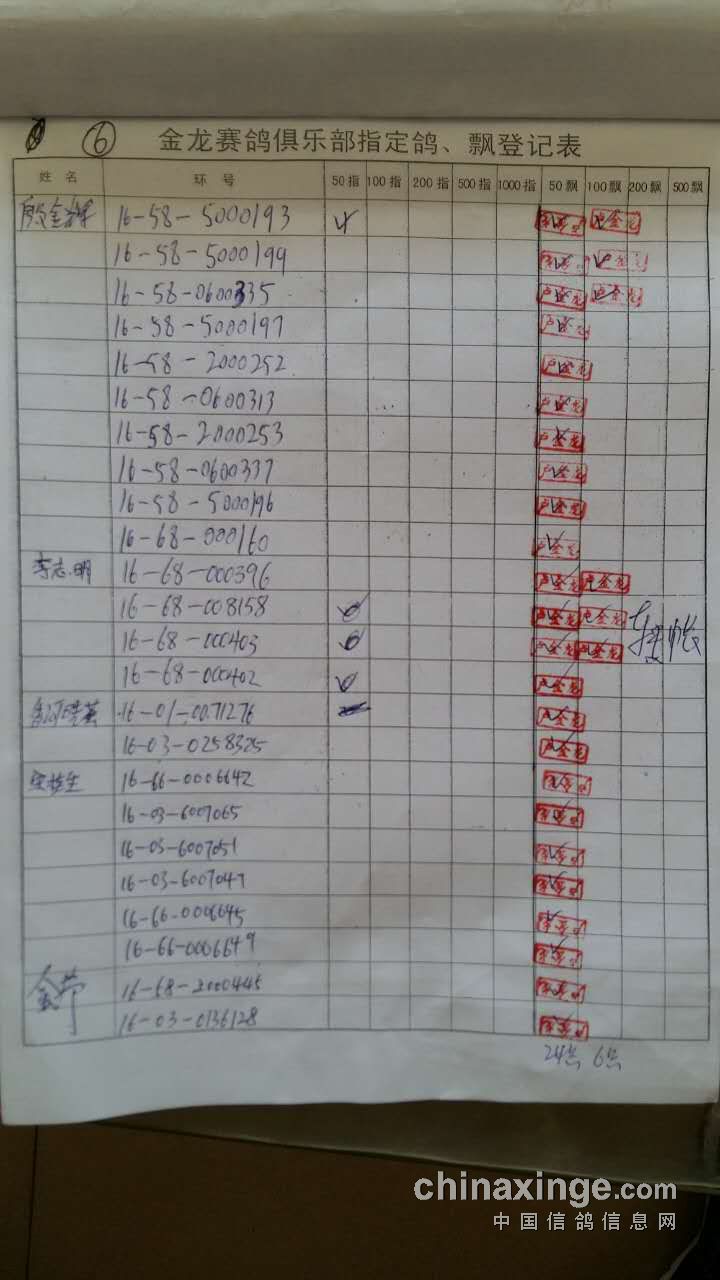 ⑥ 金龙赛鸽俱乐部指定鸽、飘登记表
姓名 环号 50指 100指 200指 500指 1000指 50飘 100飘 200飘 500飘
16-58-5000193
16-58-5000199
16-58-0600335
16-58-5000197
16-58-2000252
16-58-0600313
16-58-2000253
16-58-0600337
16-58-5000196
16-68-000160
李志明 16-68-000396
16-68-008158
16-68-000403
16-68-000402
16-01-0071276
16-03-0258325
16-66-0006642
16-03-6007065
16-03-6007051
16-03-6007047
16-66-0006645
16-66-0006649
16-68-2000445
16-03-0136128
24 6
chinaxinge.com
中国信鸽信息网